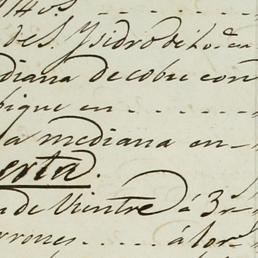 de S. Ysidro de Lo. en
diana de cobre con
pique en . . . . . . .
a mediana en-
erta.
de Vientre á 3 r
rrones . . . . . á 1 or